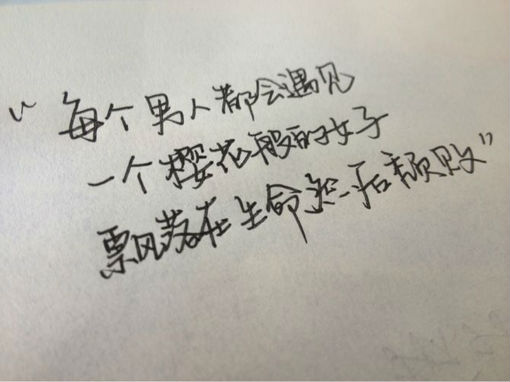 “每个男人都会遇见
一个樱花般的女子
飘落在生命然后颓败”